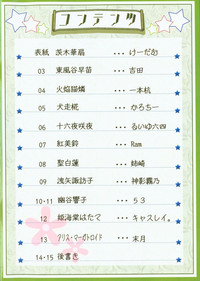 コンテンツ
表紙 茨木華扇 ･･･ けーだぬ
03 東風谷早苗 ･･･ 吉田
04 火焔猫燐 ･･･ 一本杭
05 犬走椛 ･･･ かろちー
06 十六夜咲夜 ･･･ るいゆ六四
07 紅美鈴 ･･･ Ram
08 聖白蓮 ･･･ 姉崎
09 洩矢諏訪子 ･･･ 神影霧乃
10-11 幽谷響子 ･･･ 53
12 姫海棠はたて ･･･ キャスレイ。
13 アリス・マーガトロイド ･･･ 末月
14-15 後書き